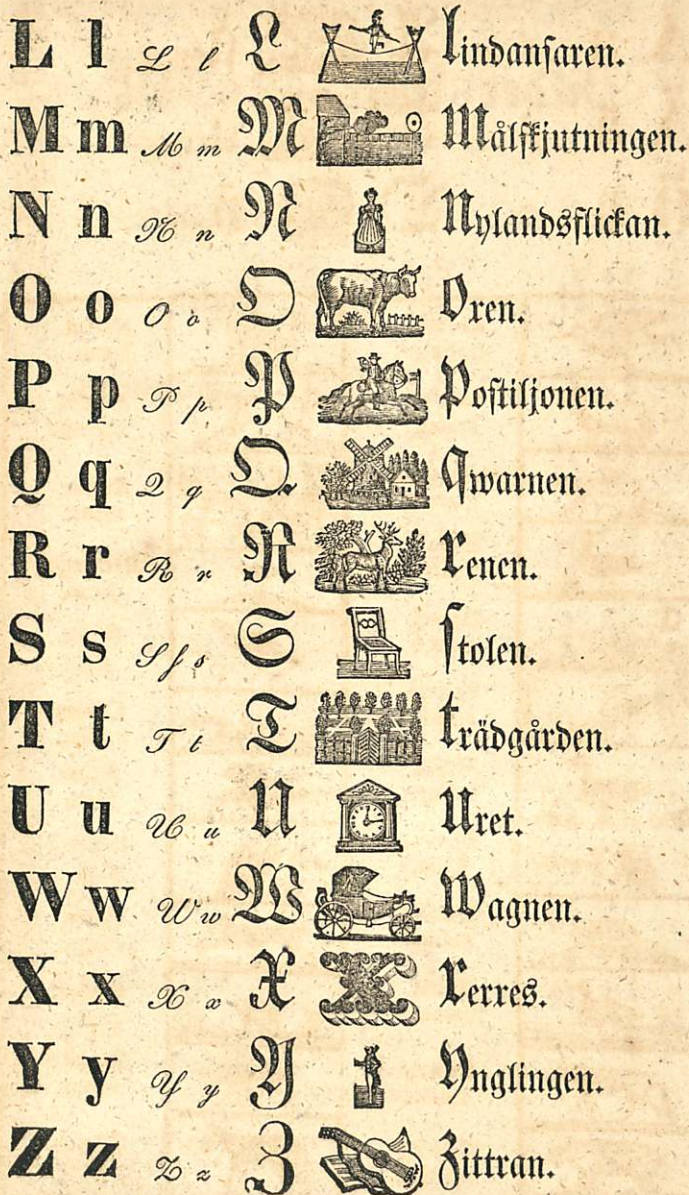 L l L l L lindansaren.
M m M m M Målskjutningen.
N n N n N Nylandsflickan.
O o O o O Oxen.
P p P p P Postiljonen.
Q q Q q Q Qwarnen.
R r R r R renen.
S s S ſ s S ſtolen.
T t T t T trädgården.
U u U u U Uret.
W w W w W Wagnen.
X x X x X Xerxes.
Y y Y y Y Ynglingen.
Z z Z z Z Zittran.